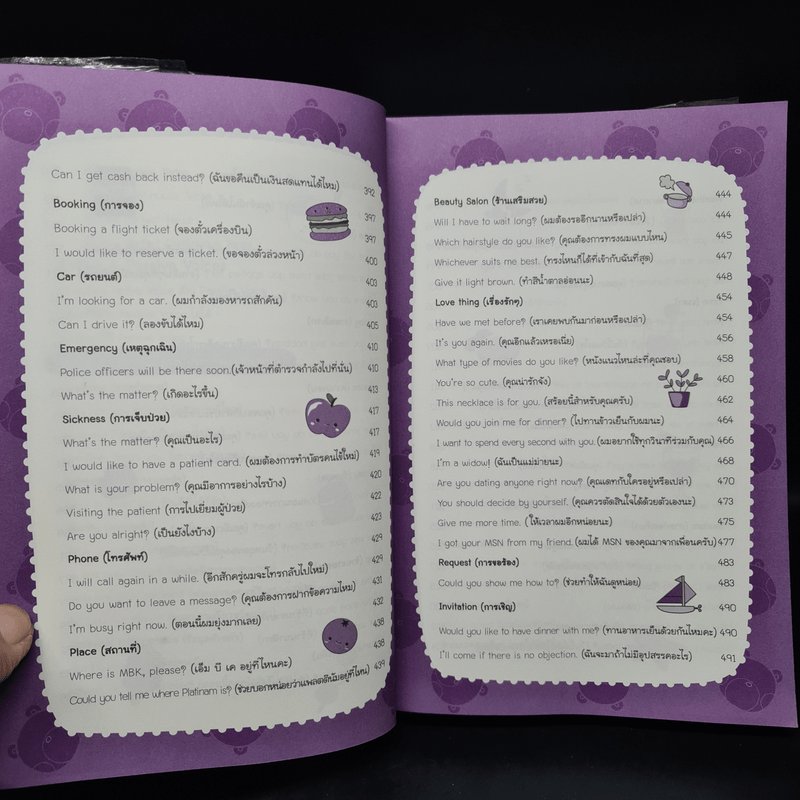 Can I get cash back instead? (ฉันขอคืนเป็นเงินสดแทนได้ไหม) 392
Booking (การจอง) 397
Booking a flight ticket (จองตั๋วเครื่องบิน) 397
I would like to reserve a ticket. (ขอจองตั๋วล่วงหน้า) 400
Car (รถยนต์) 403
I'm looking for a car. (ผมกำลังมองหารถสักคัน) 403
Can I drive it? (ลองขับได้ไหม) 405
Emergency (เหตุฉุกเฉิน) 410
Police officers will be there soon.(เจ้าหน้าที่ตำรวจกำลังไปที่นั่น) 410
What's the matter? (เกิดอะไรขึ้น) 413
Sickness (การเจ็บป่วย) 417
What's the matter? (คุณเป็นอะไร) 417
I would like to have a patient card. (ผมต้องการทำบัตรคนไข้ใหม่) 419
What is your problem? (คุณมีอาการอย่างไรบ้าง) 420
Visiting the patient (การไปเยี่ยมผู้ป่วย) 422
Are you alright? (เป็นยังไงบ้าง) 423
Phone (โทรศัพท์) 429
I will call again in a while. (อีกสักครู่ผมจะโทรกลับไปใหม่) 429
Do you want to leave a message? (คุณต้องการฝากข้อความไหม) 431
I'm busy right now. (ตอนนี้ผมยุ่งมากเลย) 432
Place (สถานที่) 438
Where is MBK, please? (เอ็ม บี เค อยู่ที่ไหนคะ) 438
Could you tell me where Platinam is? (ช่วยบอกหน่อยว่าแพลตตินัมอยู่ที่ไหน) 439
Beauty Salon (ร้านเสริมสวย) 444
Will I have to wait long? (ผมต้องรออีกนานหรือเปล่า) 444
Which hairstyle do you like? (คุณต้องการทรงผมแบบไหน) 445
Whichever suits me best. (ทรงไหนก็ได้ที่เข้ากับฉันที่สุด) 447
Give it light brown. (ทำสีน้ำตาลอ่อนนะ) 448
Love thing (เรื่องรักๆ) 454
Have we met before? (เราเคยพบกันมาก่อนหรือเปล่า) 454
It's you again. (คุณอีกแล้วเหรอเนี่ย) 456
What type of movies do you like? (หนังแนวไหนล่ะที่คุณชอบ) 458
You're so cute. (คุณน่ารักจัง) 460
This necklace is for you. (สร้อยนี้สำหรับคุณครับ) 462
Would you join me for dinner? (ไปทานข้าวเย็นกับผมนะ) 464
I want to spend every second with you. (ผมอยากใช้ทุกวินาทีร่วมกับคุณ) 466
I'm a widow! (ฉันเป็นแม่ม่ายนะ) 468
Are you dating anyone right now? (คุณเดทกับใครอยู่หรือเปล่า) 470
You should decide by yourself. (คุณควรตัดสินใจได้ด้วยตัวเองนะ) 473
Give me more time. ( ให้เวลาผมอีกหน่อยนะ) 475
I got your MSN from my friend. (ผมได้ MSN ของคุณมาจากเพื่อนครับ) 477
Request (การขอร้อง) 483
Could you show me how to? (ช่วยทำให้ฉันดูหน่อย) 483
Invitation (การเชิญ) 490
Would you like to have dinner with me? (ทานอาหารเย็นด้วยกันไหมคะ) 490
I'll come if there is no objection. (ฉันจะมาถ้าไม่มีอุปสรรคอะไร) 491